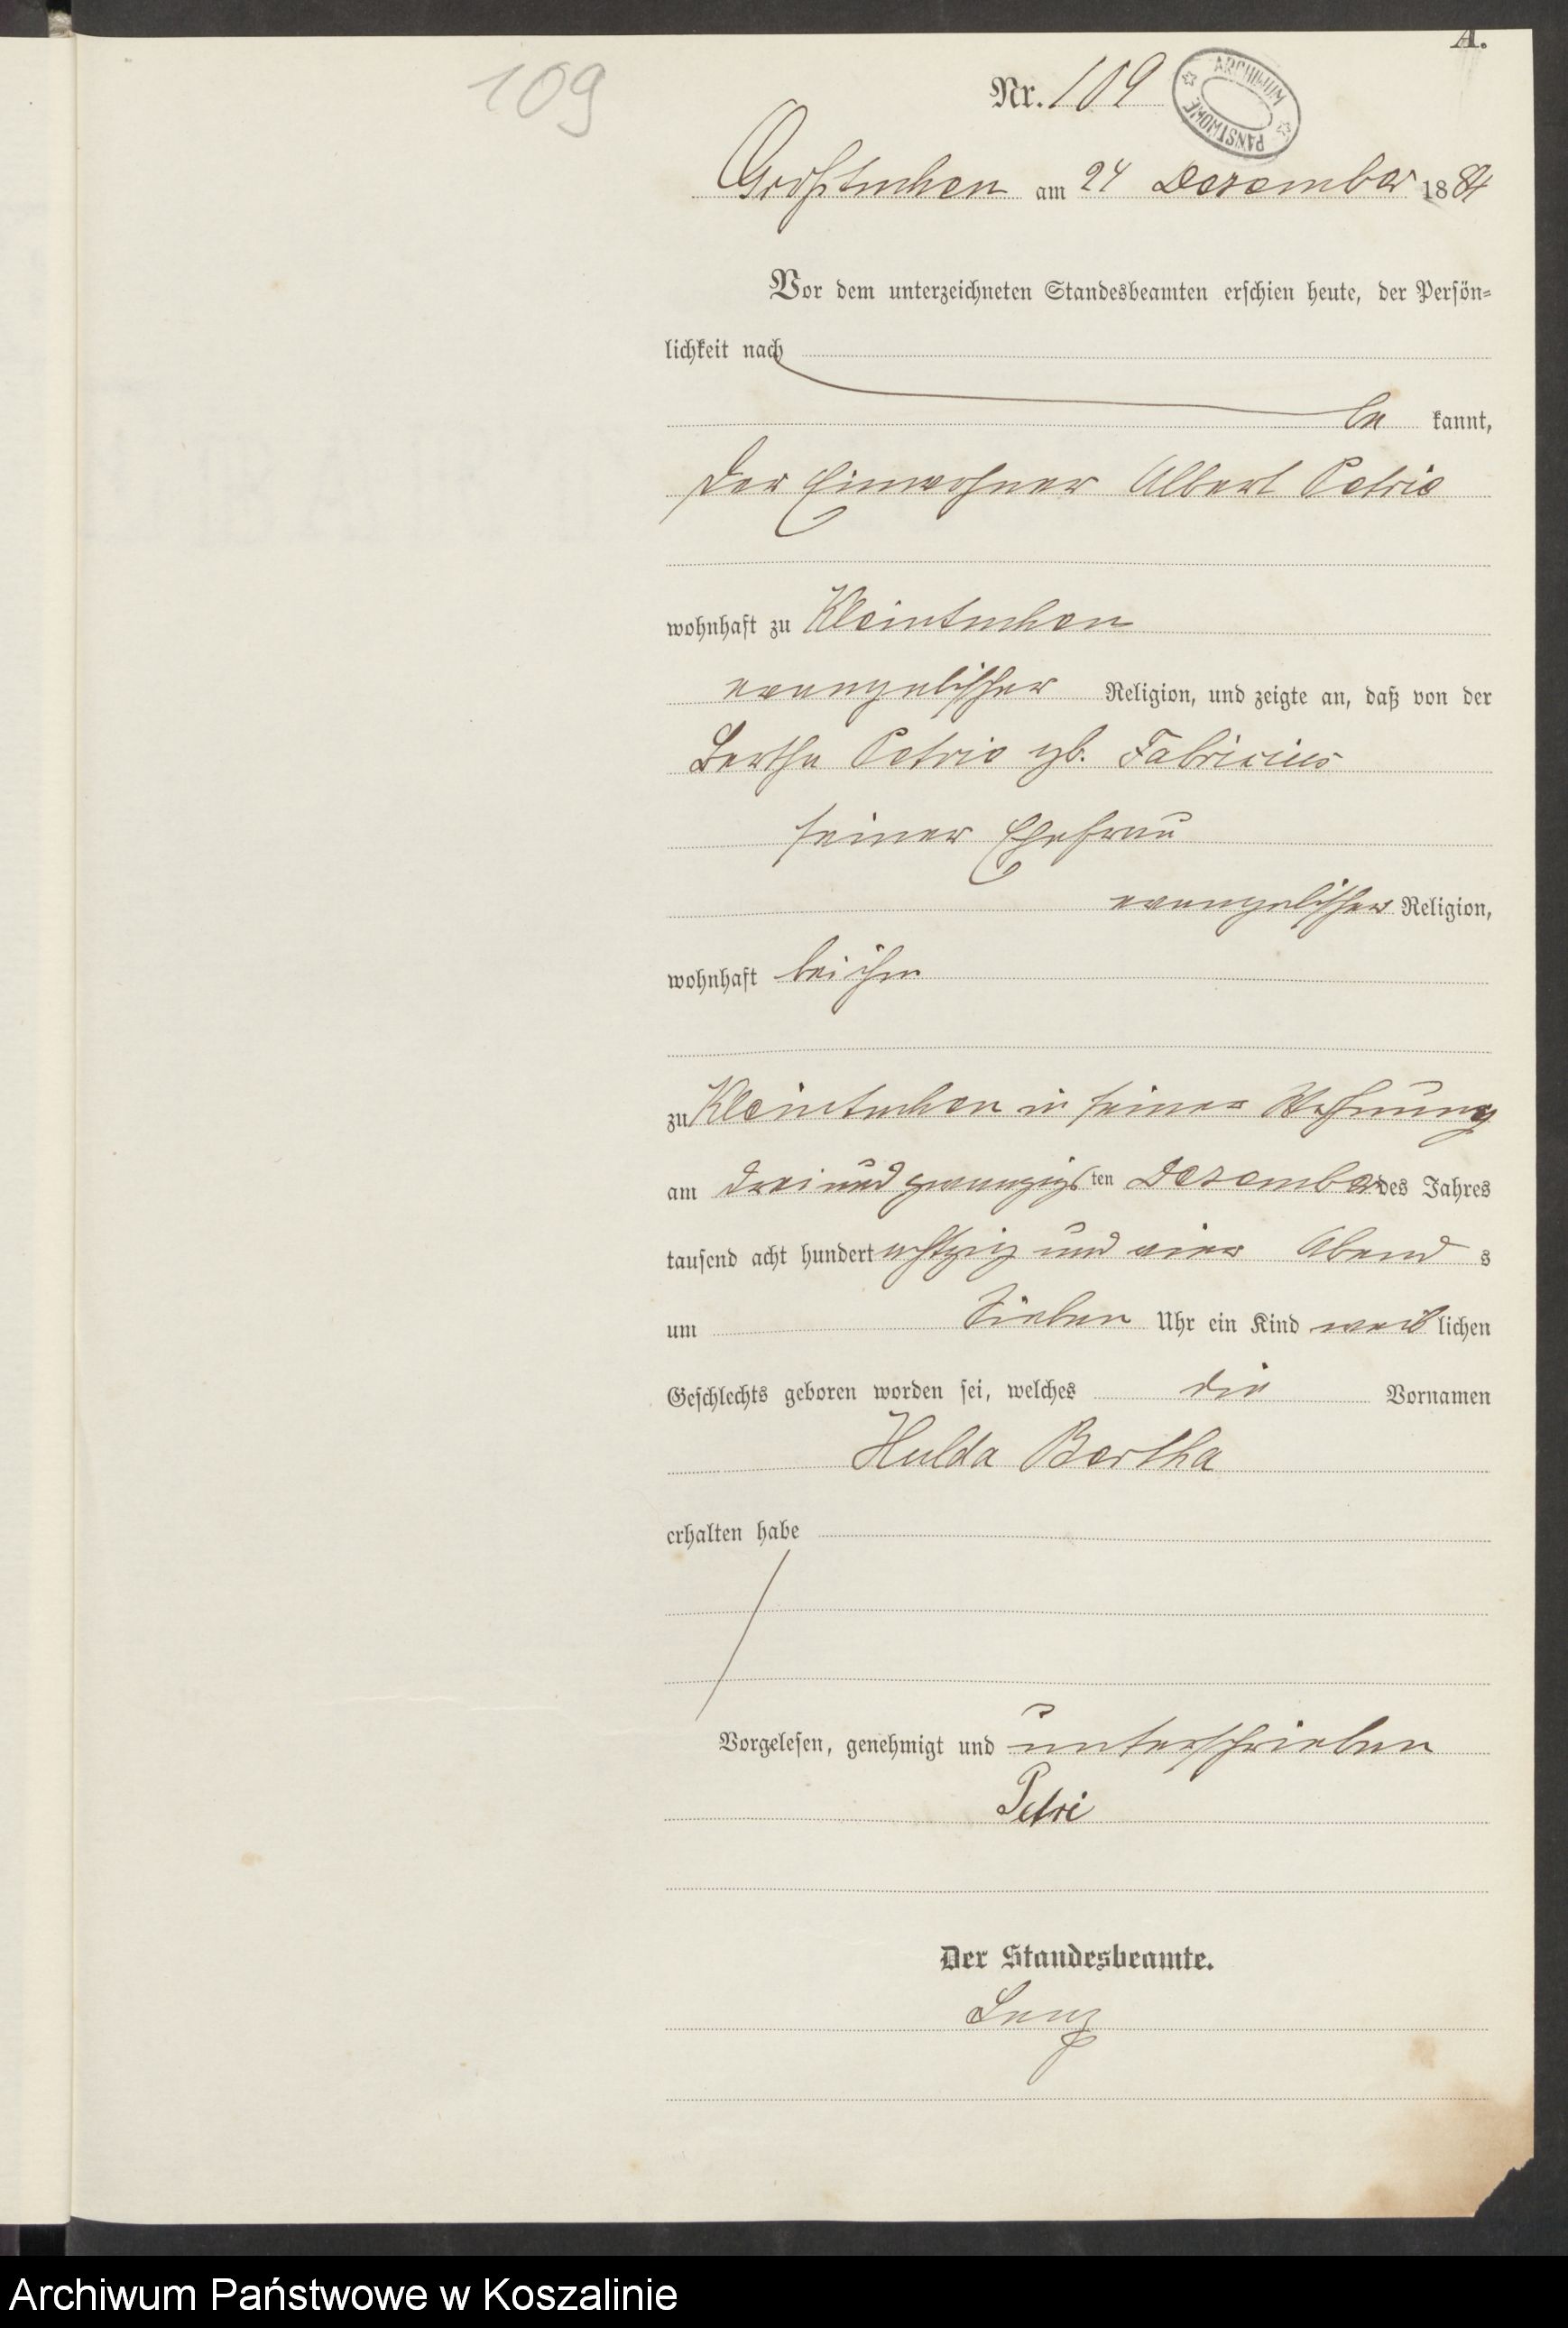 A.
109
Nr. 109
ARCHIWUM PAŃSTWOWE
Großtuchen am 24 Dezember 1884
Vor dem unterzeichneten Standesbeamten erschien heute, der Persön-
lichkeit nach
be kannt,
der Einwohner Albert Petrie
wohnhaft zu Kleintuchen
evangelischer Religion, und zeigte an, daß von der
Bertha Petrie gb. Fabricius
seiner Ehefrau
evangelischer Religion,
wohnhaft bei ihm
zu Kleintuchen in seiner Wohnung
am drei und zwanzigsten Dezember des Jahres
tausend acht hundert achtzig und vier Abend s
um Sieben Uhr ein Kind weiblichen
Geschlechts geboren worden sei, welches die Vornamen
Hulda Bertha
erhalten habe
Vorgelesen, genehmigt und unterschrieben
Petri
Der Standesbeamte.
Lenz
Archiwum Państwowe w Koszalinie